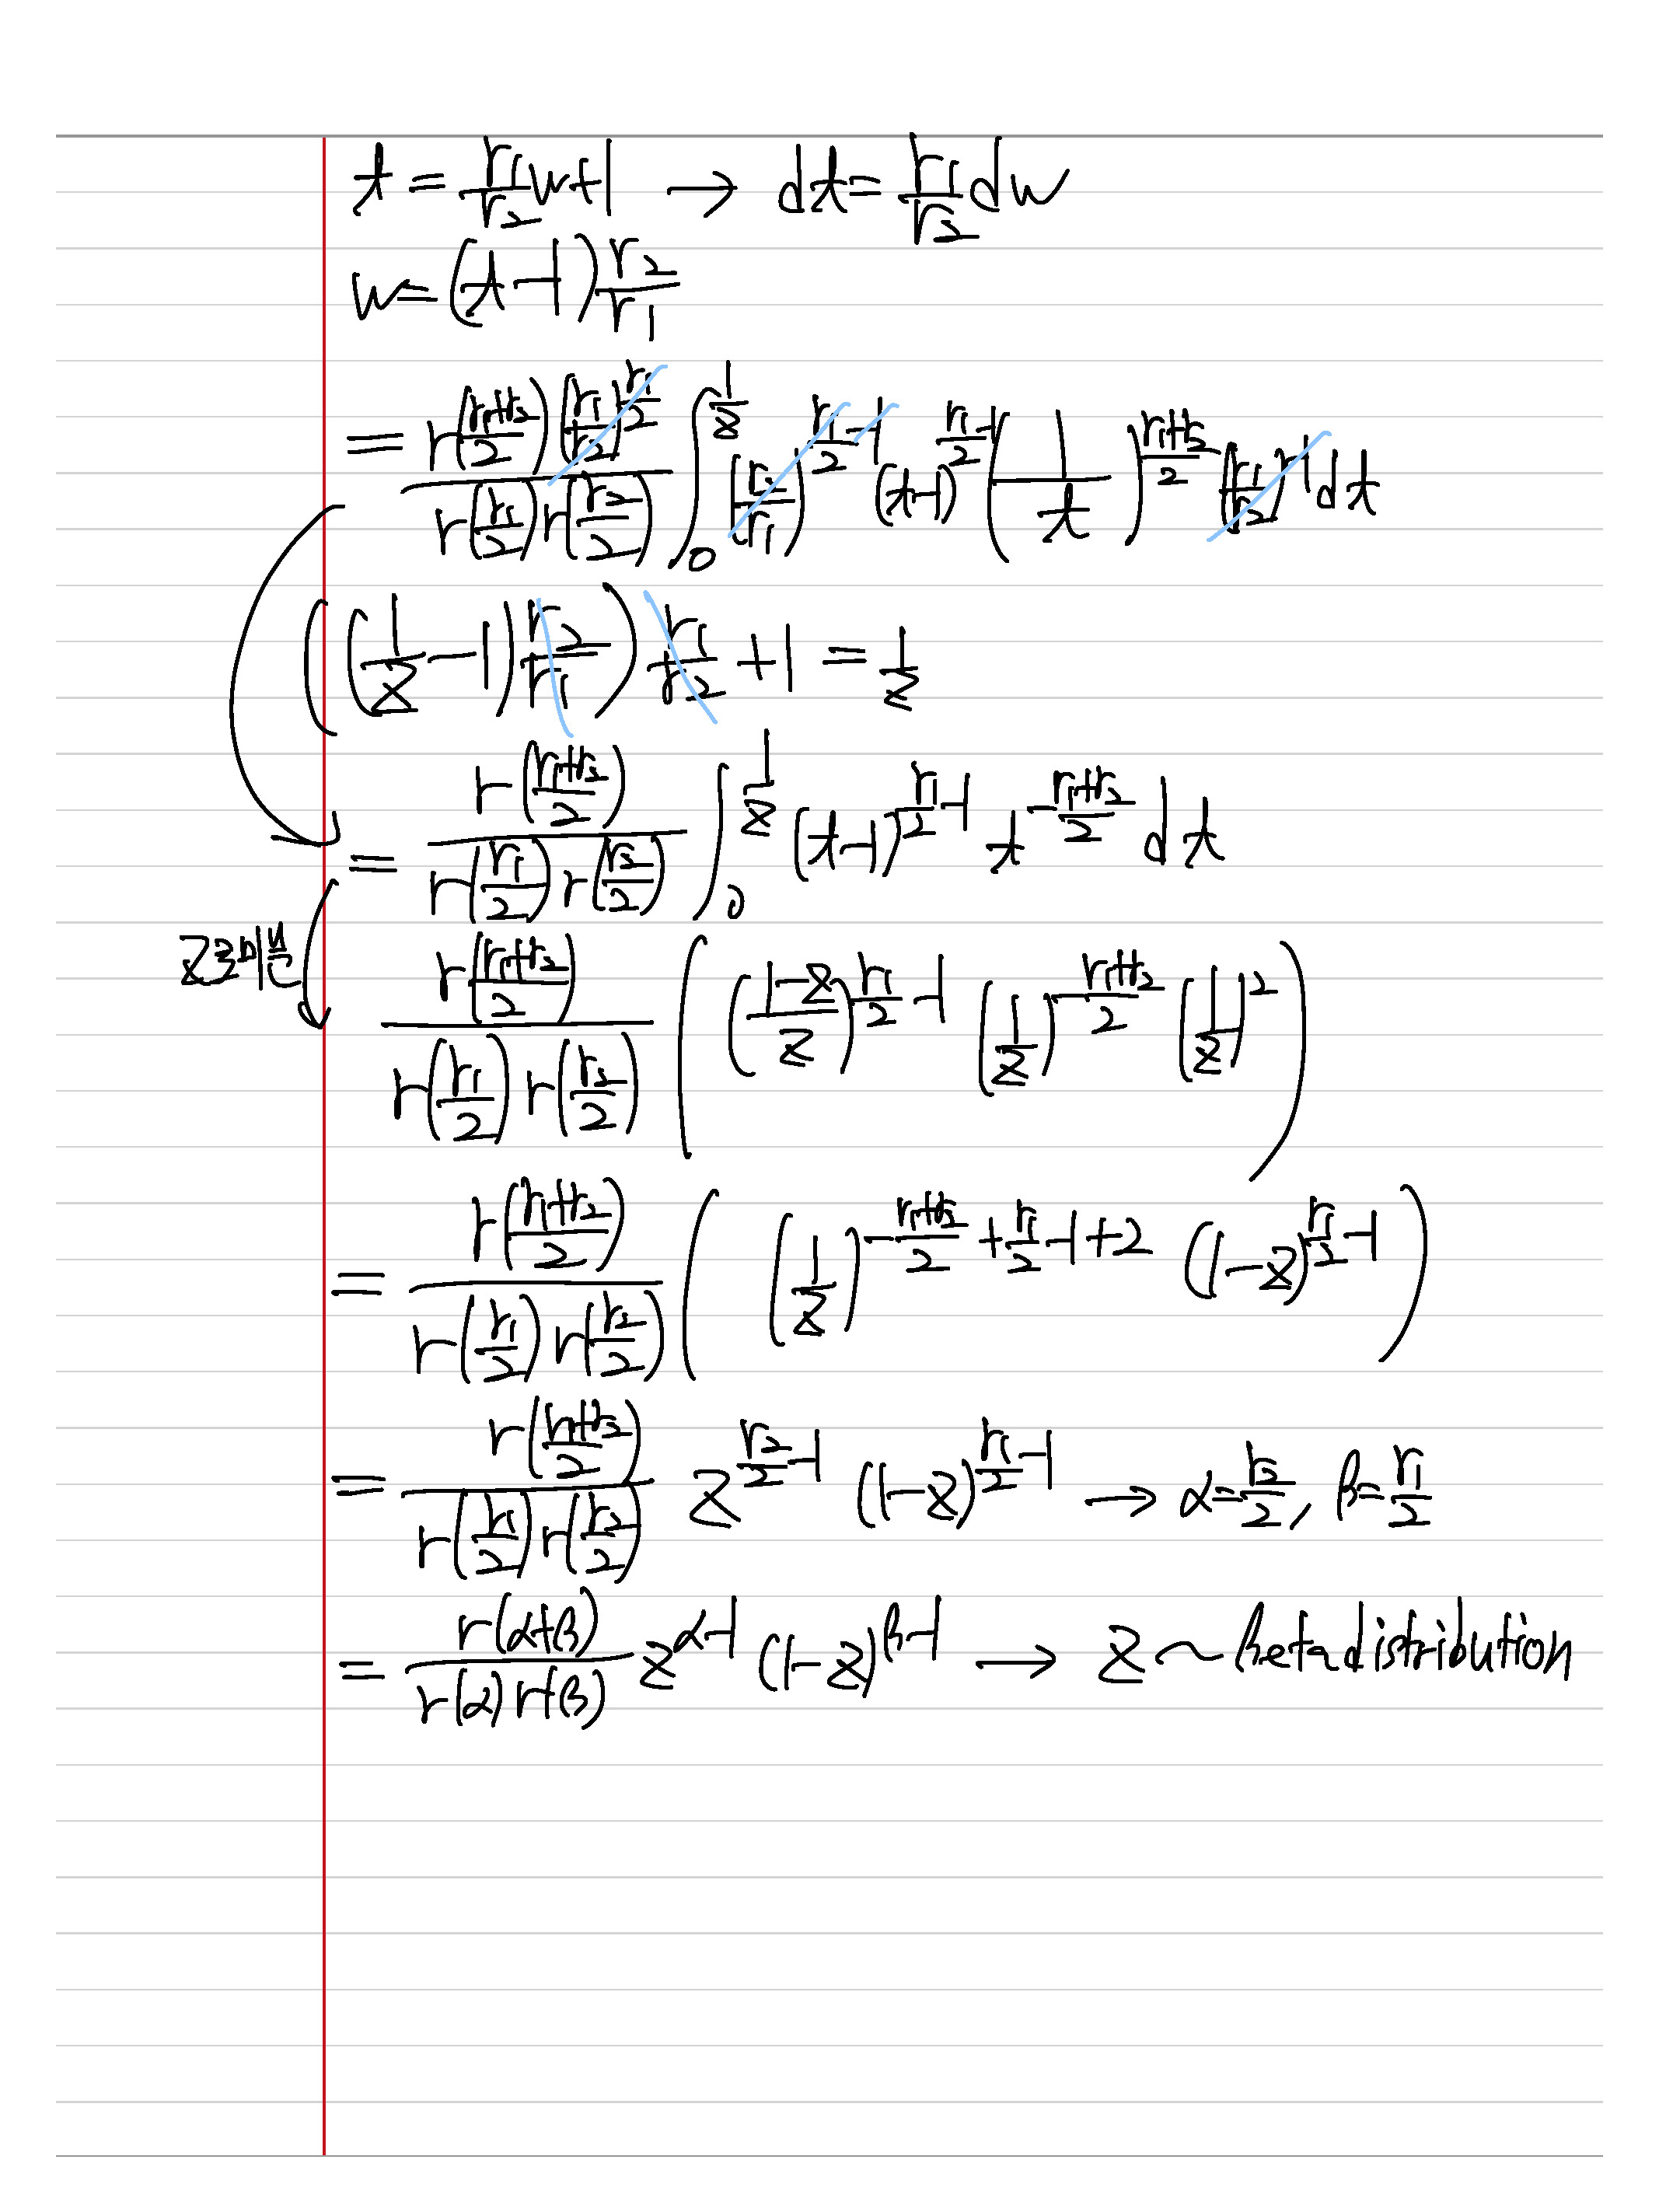 t = \frac{r_1}{r_2}w+1 → dt = \frac{r_1}{r_2}dw
w = (t-1)\frac{r_2}{r_1}
= \frac{Γ(\frac{r_1+r_2}{2})(\frac{r_1}{r_2})^{\frac{r_1}{2}}}{Γ(\frac{r_1}{2})Γ(\frac{r_2}{2})} \int_0^{\frac{1}{z}} (\frac{r_2}{r_1})^{\frac{r_1}{2}-1} (t-1)^{\frac{r_1}{2}-1} (\frac{1}{t})^{\frac{r_1+r_2}{2}} (\frac{r_1}{r_2})^{-1} dt
((\frac{1}{z}-1)\frac{r_2}{r_1})\frac{r_1}{r_2}+1 = \frac{1}{z}
= \frac{Γ(\frac{r_1+r_2}{2})}{Γ(\frac{r_1}{2})Γ(\frac{r_2}{2})} \int_0^{\frac{1}{z}} (t-1)^{\frac{r_1}{2}-1} t^{-\frac{r_1+r_2}{2}} dt
z로 미분
\frac{Γ(\frac{r_1+r_2}{2})}{Γ(\frac{r_1}{2})Γ(\frac{r_2}{2})} ((\frac{1-z}{z})^{\frac{r_1}{2}-1} (\frac{1}{z})^{-\frac{r_1+r_2}{2}} (\frac{1}{z})^2)
= \frac{Γ(\frac{r_1+r_2}{2})}{Γ(\frac{r_1}{2})Γ(\frac{r_2}{2})} ((\frac{1}{z})^{-\frac{r_1+r_2}{2}+\frac{r_1}{2}-1+2} (1-z)^{\frac{r_1}{2}-1})
= \frac{Γ(\frac{r_1+r_2}{2})}{Γ(\frac{r_1}{2})Γ(\frac{r_2}{2})} z^{\frac{r_2}{2}-1} (1-z)^{\frac{r_1}{2}-1} → α=\frac{r_2}{2}, β=\frac{r_1}{2}
= \frac{Γ(α+β)}{Γ(α)Γ(β)} z^{α-1} (1-z)^{β-1} → z ~ Beta distribution